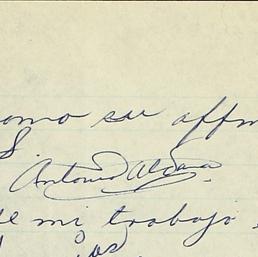 omo su affm
S.
Antonio Aldana
de mi trabajo